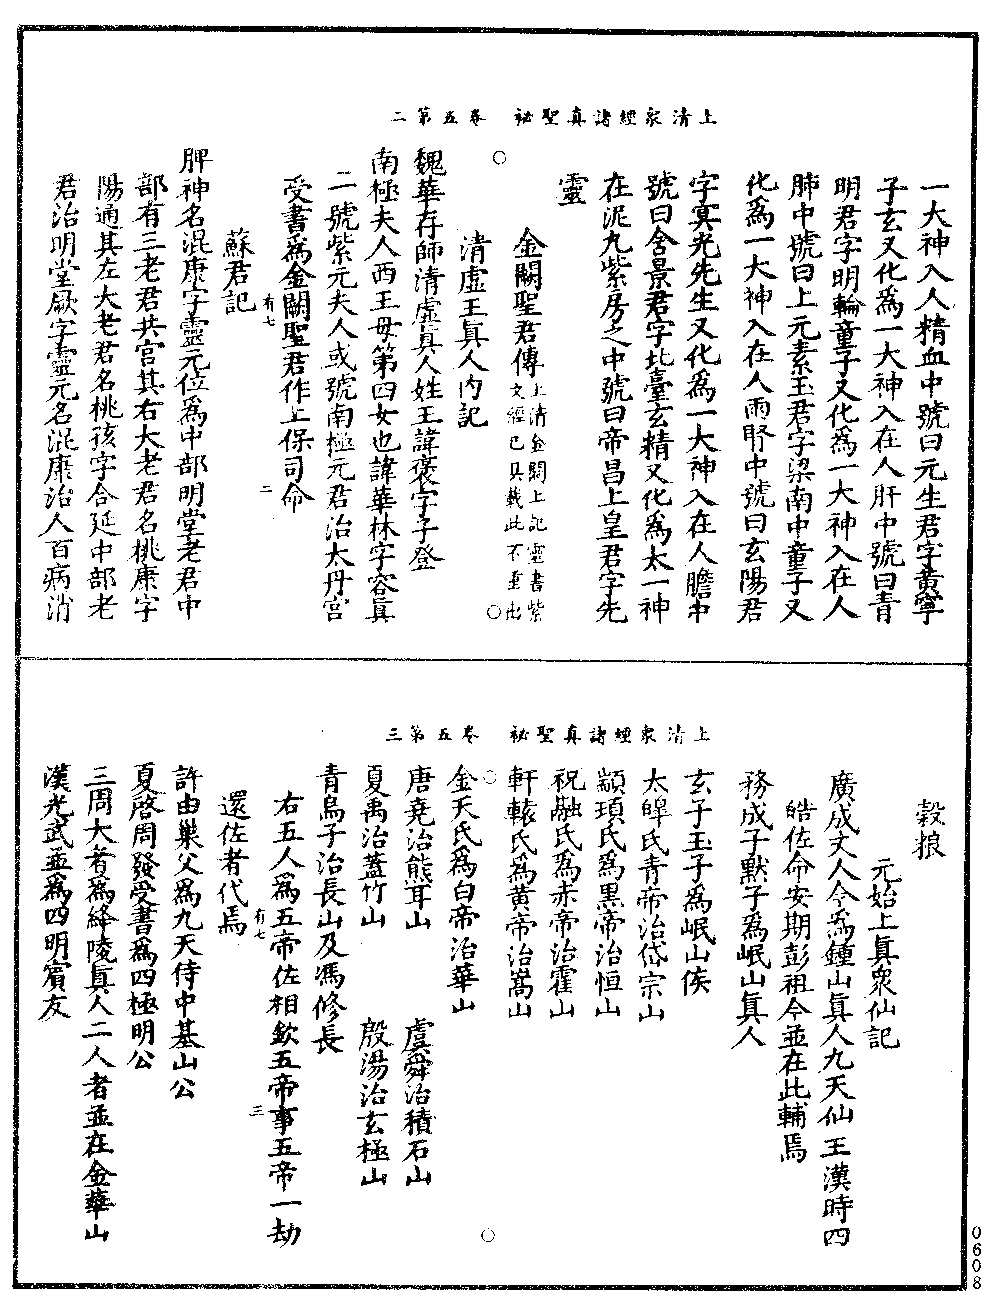 上清衆經諸真聖祕　卷五第二
一大神入人精血中號曰元生君字黄寧
子玄又化為一大神入在人肝中號曰青
明君字明輪童子又化為一大神入在人
肺中號曰上元素玉君字梁南中童子又
化為一大神入在人兩腎中號曰玄陽君
字冥光先生又化為一大神入在人膽中
號曰含景君字北臺玄精又化為太一神
在泥九紫房之中號曰帝昌上皇君字先
靈
金闕聖君傳上清金闕上記靈書紫文經已具載此不重出
清虛王眞人内記
魏華存師清虛真人姓王諱褒字子登
南極夫人西王母第四女也諱華林字容眞
一號紫元夫人或號南極元君治太丹宫
受書為金闕聖君作上保司命
有七　二
蘇君記
脾神名混康字靈元位為中部明堂老君中
部有三老君共宫其右大老君名桃康字
陽通其左大老君名桃孩字合延中部老
君治明堂厥字靈元名混康治人百病消
上清衆經諸真聖祕　卷五第三
穀粮
元始上眞衆仙記
廣成丈人今為鍾山眞人九天仙王漢時四
皓佐命安期彭祖今並在此輔焉
務成子默子為岷山眞人
玄子玉子為岷山侯
太皥氏青帝治岱宗山
顓頊氏為黑帝治恒山
祝融氏為赤帝治霍山
軒轅氏為黄帝治嵩山
金天氏為白帝治華山
唐堯治熊耳山　虞舜治積石山
夏禹治蓋竹山　殷湯治玄極山
青烏子治長山及馮修長
右五人為五帝佐相欽五帝事五帝一劫
有七　三
還佐者代焉
許由巢父為九天侍中基山公
夏啓周發受書為四極明公
三周大者為絳陵眞人二人者並在金華山
漢光武並為四明賓友
0608